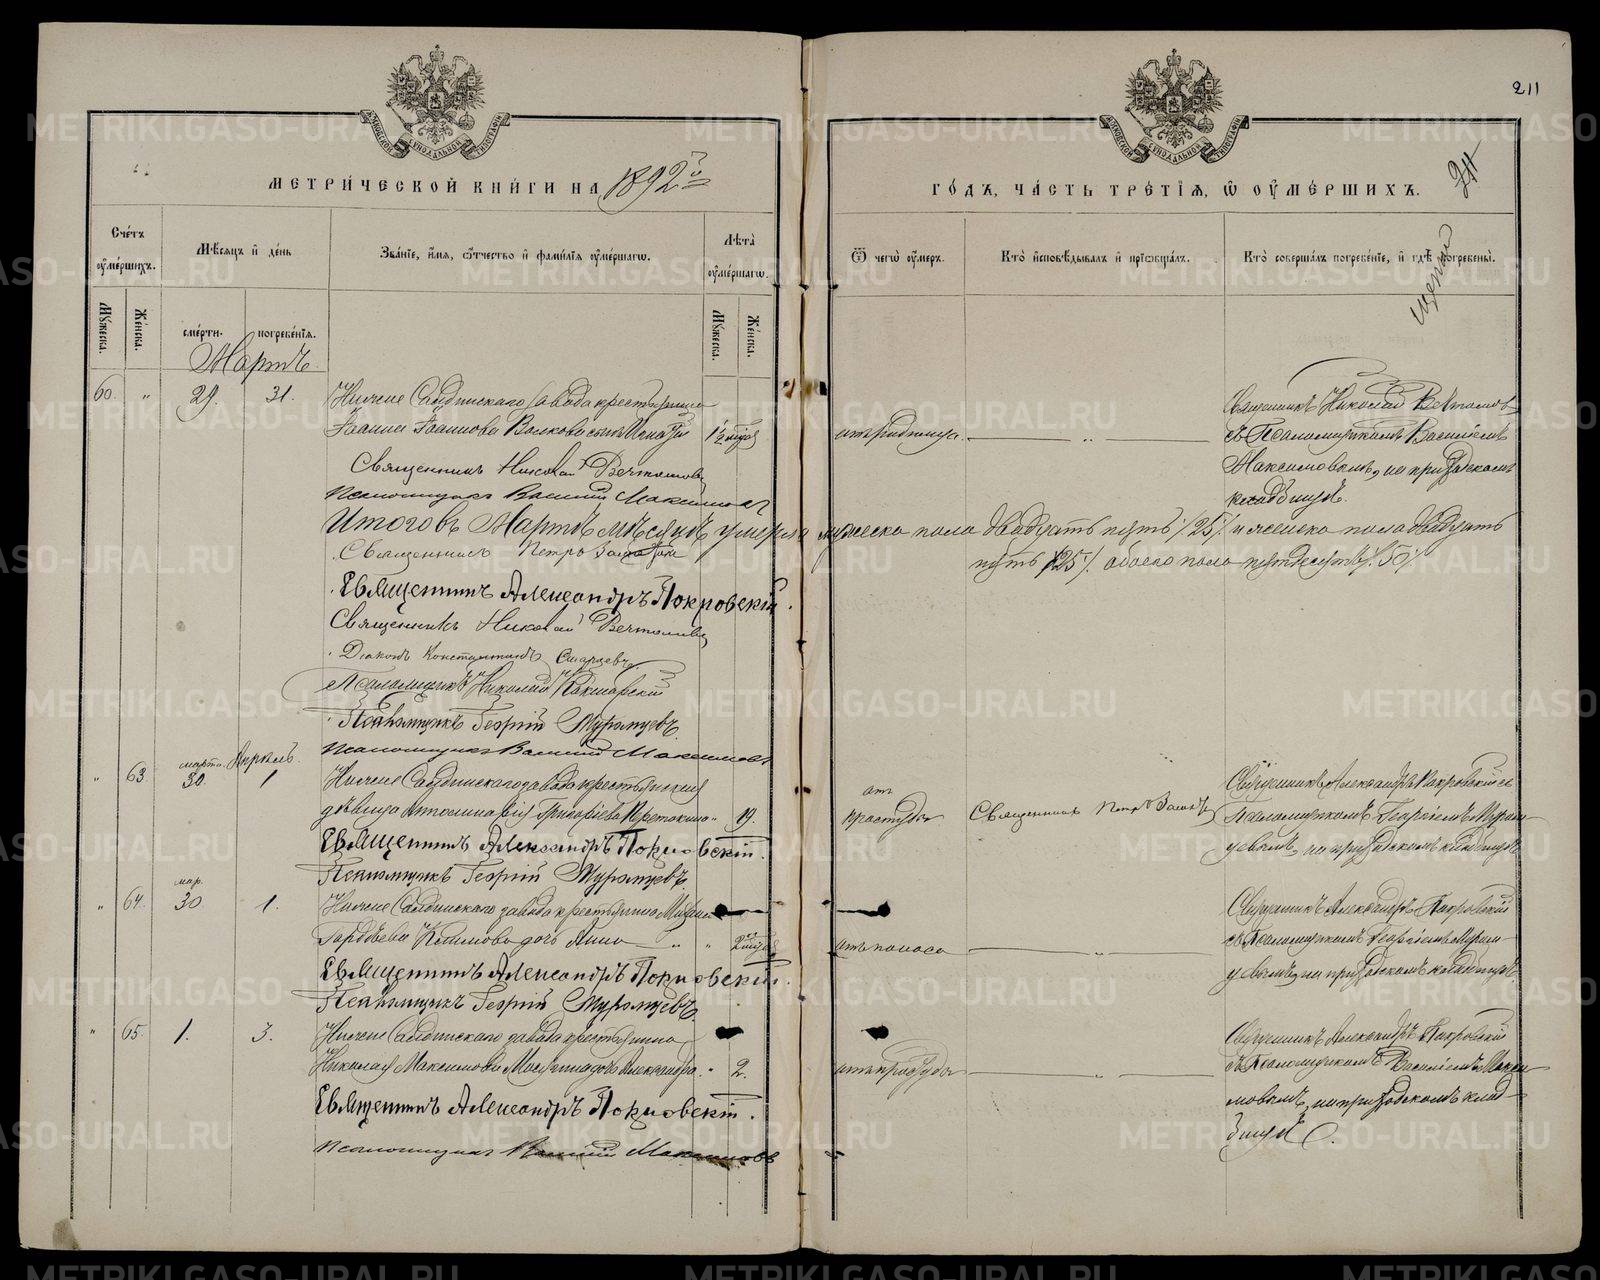 211
211
МЕТРИ́ЧЕСКОЙ КНИ́ГИ НА 1892й
ГО́ДЪ, ЧА́СТЬ ТРЕ́ТІЯ, Ѡ ОУМЕ́РШИХЪ.
Сче́тъ оуме́ршихъ.
Мѣ́сяцъ и де́нь
Зва́ніе, и́мя, ѻ́тчество и фами́лія оуме́ршагѡ.
Лѣта̀ оуме́ршагѡ.
Ѿ чегѡ̀ оу́меръ.
Кто̀ и́сповѣдывалъ и прїѡбща́лъ.
Кто̀ соверша́лъ погребе́ніе, и гдѣ̀ погребены̀.
Мꙋ́жеска.
Же́нска.
сме́рти.
погребе́нія.
Мꙋ́жеска.
Же́нска.
Мартъ
60. „ 29. 31. Нижне Салдинскаго завода крестьянина
Іоанна Іоаннова Волкова сынъ Игнатій 1½ мѣся
отъ родимца. „
Священникъ Николай Вечтомовъ
съ Псаломщикомъ Василіемъ
Максимовымъ, на приходскомъ
кладбищѣ.
Священникъ Николай Вечтомовъ
Псаломщикъ Василій Максимовъ
Итого въ Мартѣ мѣсяцѣ умерло мужеска пола двадцать пять /25/ и женска пола двадцать
пять /25/. обоего пола пятьдесятъ /50/.
Священникъ Петръ
Священникъ Александръ Покровскій.
Священникъ Николай Вечтомовъ
Діаконъ Константинъ Старцевъ.
Псаломщикъ Николай Кокшарскій
Псаломщикъ Георгій Мурзинцевъ.
Псаломщикъ Василій Максимовъ
марта Апрѣль.
„ 63 30. 1 Нижне Салдинскаго завода крестьянская
дѣвица Григоріева 19.
отъ
простуды
Священникъ Петръ
Священникъ Александръ Покровскій съ
Псаломщикомъ Георгіемъ
на приходскомъ кладбищѣ
Священникъ Александръ Покровскій.
Псаломщикъ Георгій
мар.
„ 64. 30 1. Нижне Салдинскаго завода крестьянина
Гордѣева Климова дочь Анна „ „ 2 мѣсяц
отъ поноса „
Священникъ Александръ Покровскій
съ Псаломщикомъ Георгіемъ
на приходскомъ кладбищѣ.
Священникъ Александръ Покровскій.
Псаломщикъ Георгій
„ 65. 1. 3. Нижне Салдинскаго завода крестьянина
Николая Максимова дочь Александра. „ 2.
отъ простуды „
Священникъ Александръ Покровскій
съ Псаломщикомъ Василіемъ Макси
мовымъ, на приходскомъ клад
бищѣ.
Священникъ Александръ Покровскій.
Псаломщикъ Василій Максимовъ
METRIKI.GASO-URAL.RU